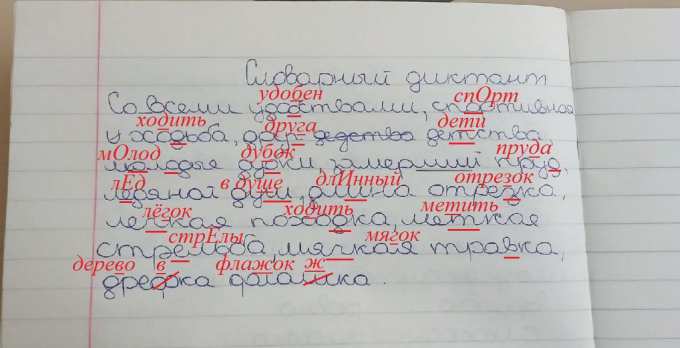 Словарный диктант
удобен спОрт
Со всеми удобствами, спортивная
ходить друга дети
ходьба, друг детства детства,
мОлод дубок пруда
молодые дубки, замерший пруд,
лЕд в душе длИнный отрезок
ледяной душ, длина отрезка,
лёгок ходить метить
легкая походка, меткая
стрЕлы мягок
стрельба, мягкая травка,
дерево в флажок ж
древка флашка.